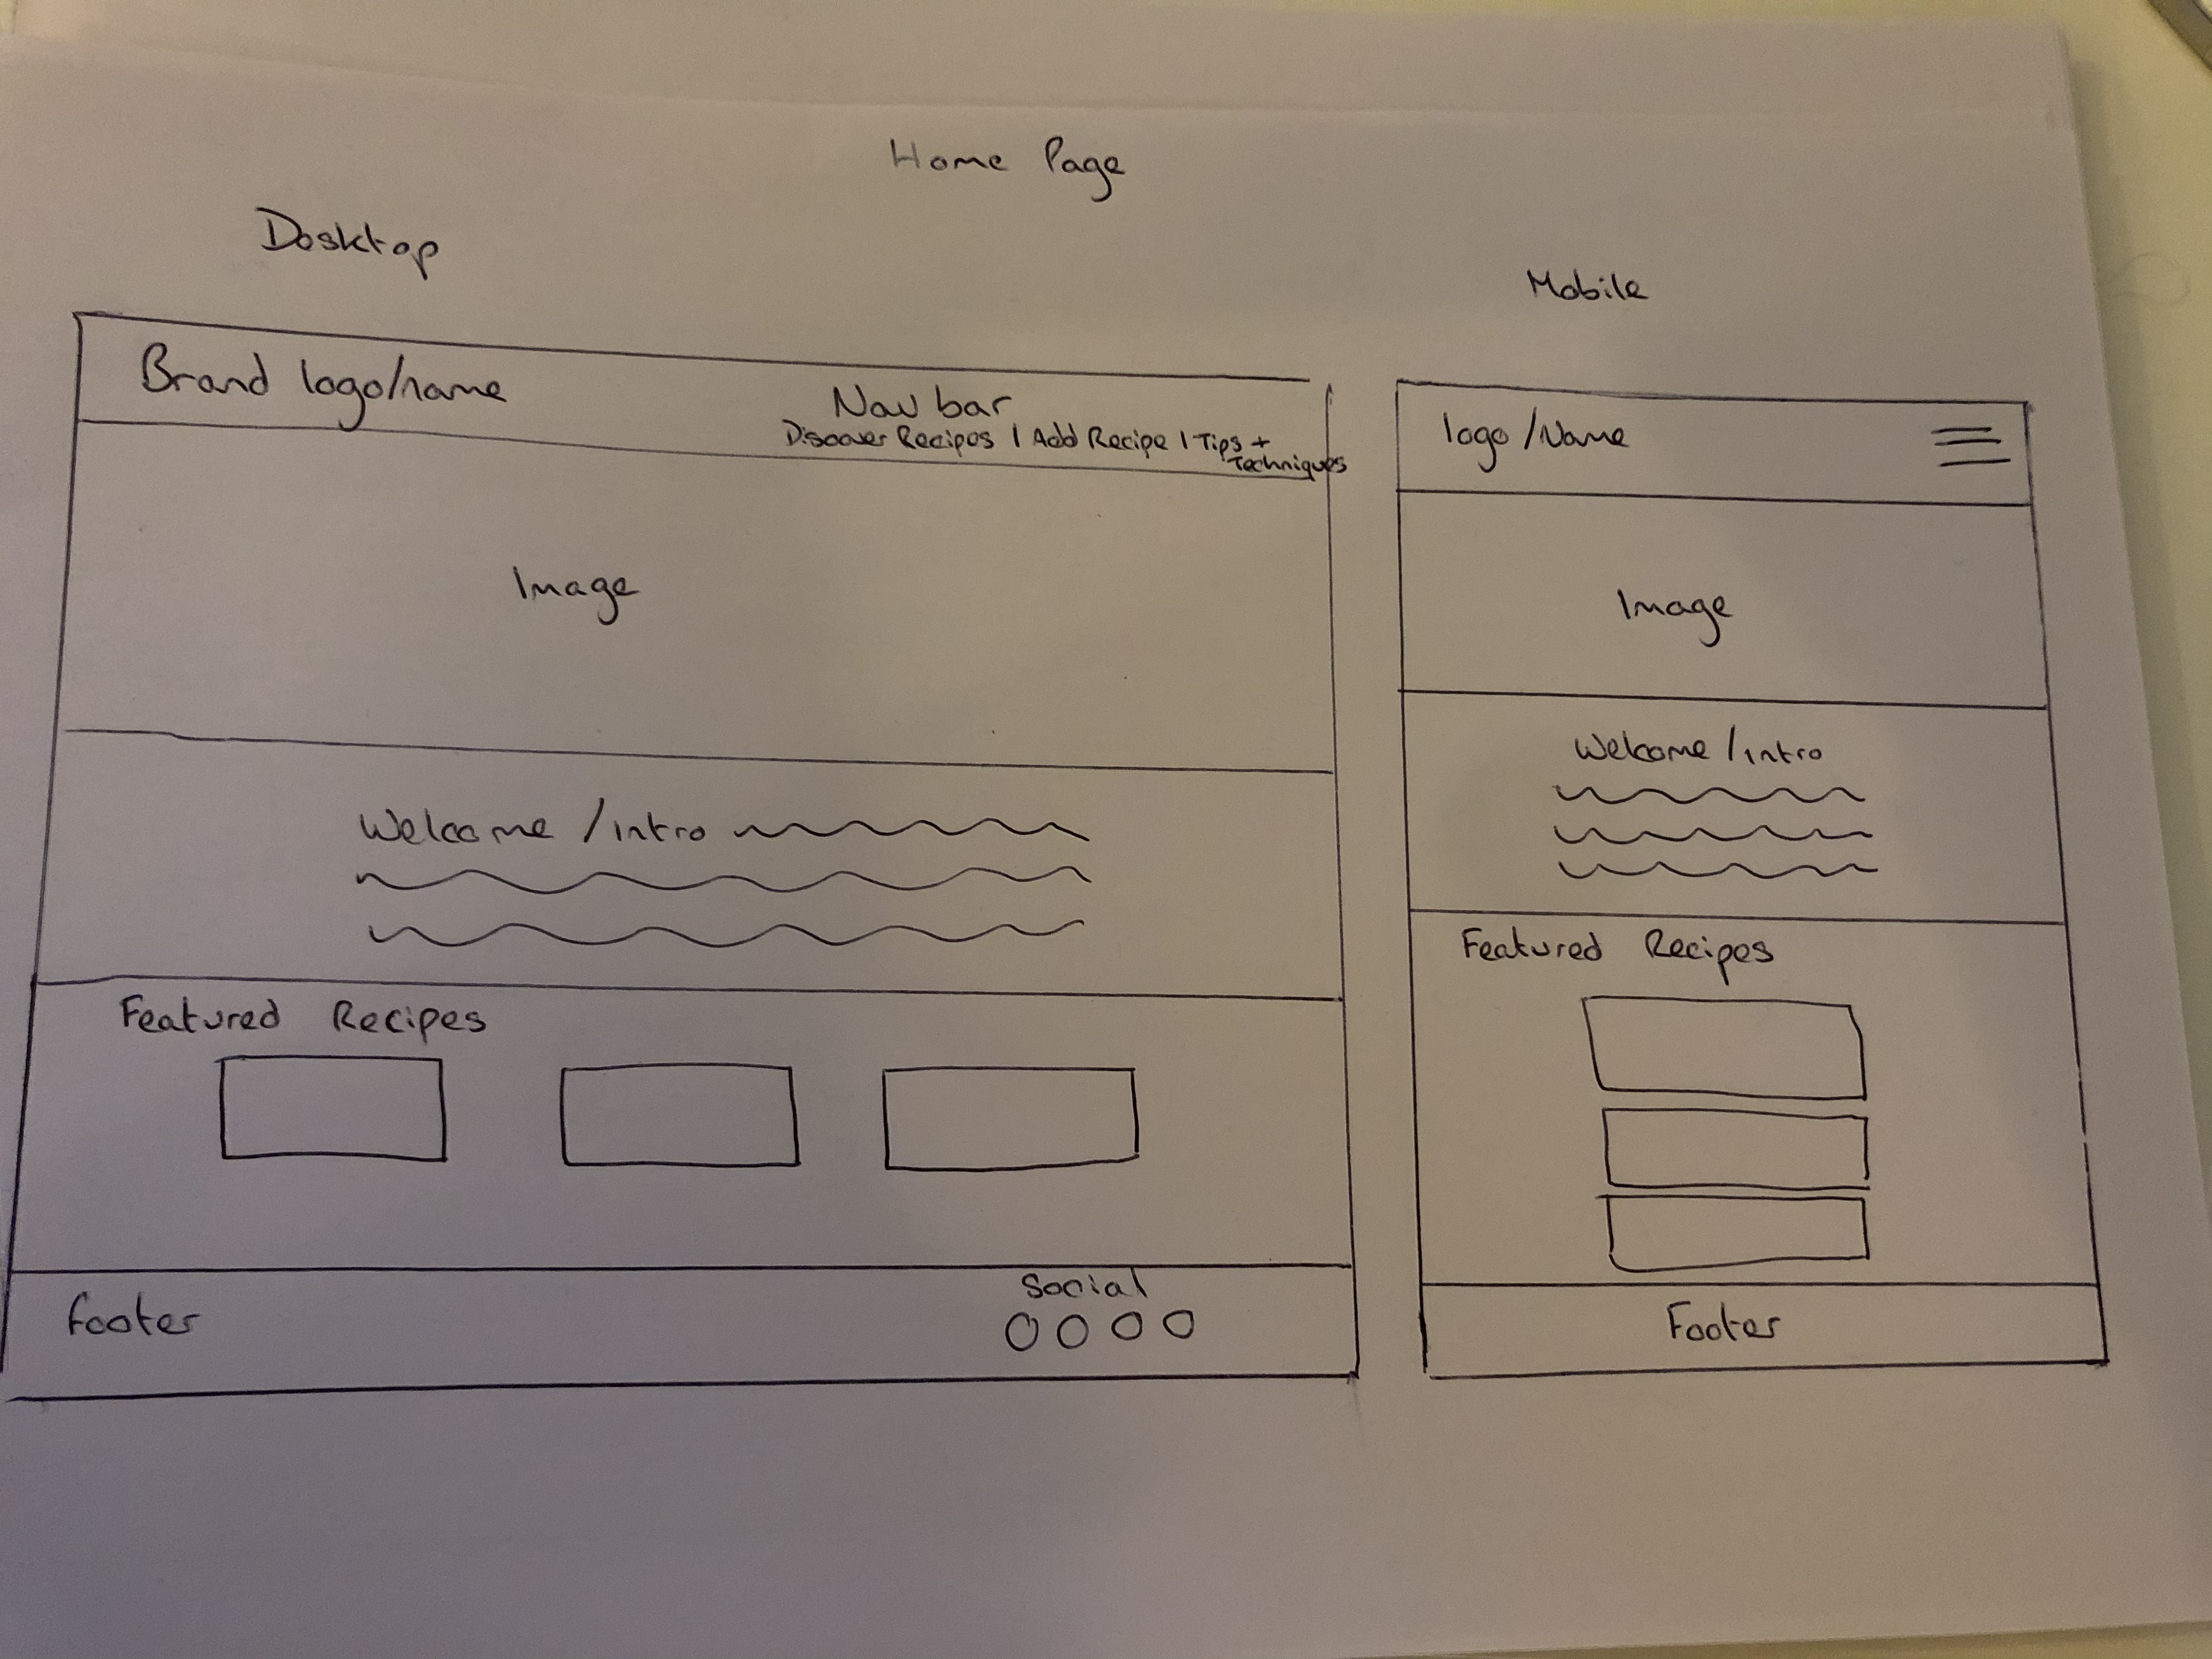 Home Page
Desktop
Mobile
Brand logo/name
Nav bar
Discover Recipes | Add Recipe | Tips +
Techniques
Image
Welcome / intro
Featured Recipes
footer
Social
logo / Name
Image
Welcome / intro
Featured Recipes
Footer